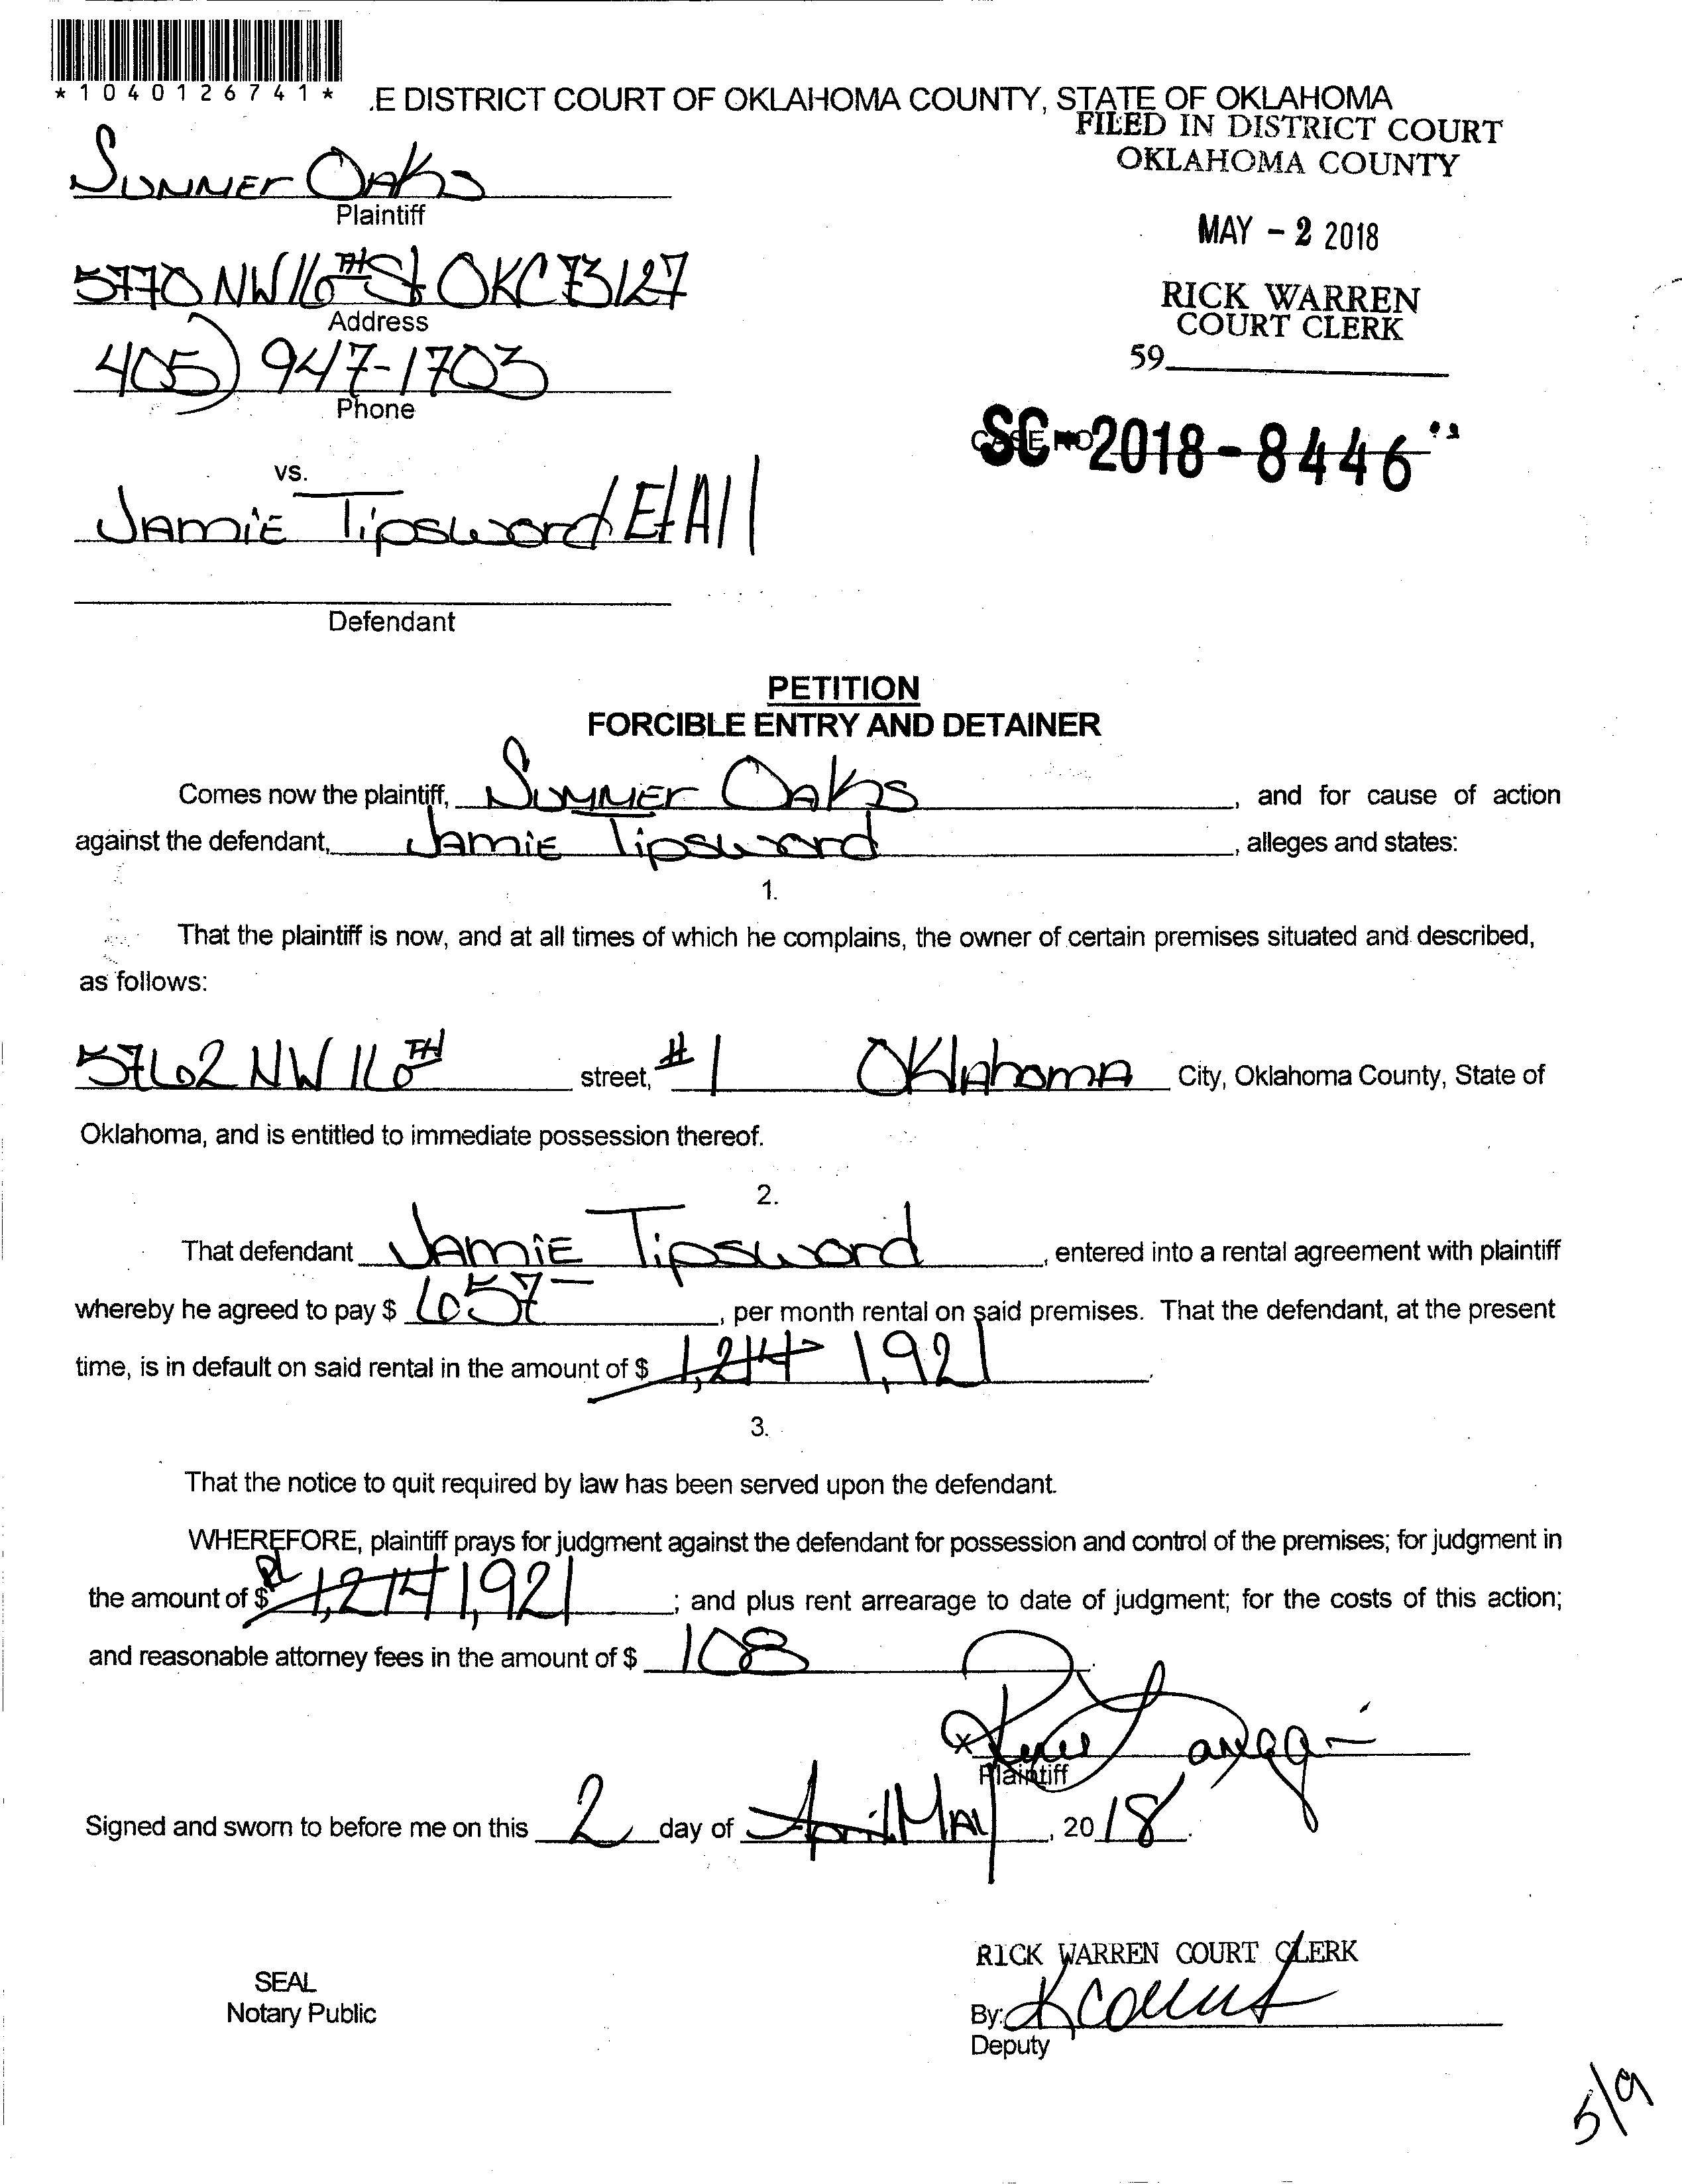 *1040126741*
.E DISTRICT COURT OF OKLAHOMA COUNTY, STATE OF OKLAHOMA
FILED IN DISTRICT COURT
OKLAHOMA COUNTY
Summer Oaks
Plaintiff
MAY - 2 2018
5770 NW 16TH St OKC 73127
Address
RICK WARREN
COURT CLERK
59
405) 947-1703
Phone
CASE NO
SC-2018-8446
vs.
Jamie Tipsword Et All
Defendant
PETITION
FORCIBLE ENTRY AND DETAINER
Comes now the plaintiff, Summer Oaks, and for cause of action
against the defendant, Jamie Tipsword, alleges and states:
1.
That the plaintiff is now, and at all times of which he complains, the owner of certain premises situated and described,
as follows:
5762 NW 16TH street, #1 Oklahoma City, Oklahoma County, State of
Oklahoma, and is entitled to immediate possession thereof.
2.
That defendant Jamie Tipsword, entered into a rental agreement with plaintiff
whereby he agreed to pay $ 657-, per month rental on said premises. That the defendant, at the present
time, is in default on said rental in the amount of $ 1,214 1,921.
3.
That the notice to quit required by law has been served upon the defendant.
WHEREFORE, plaintiff prays for judgment against the defendant for possession and control of the premises; for judgment in
the amount of $ 1,214 1,921; and plus rent arrearage to date of judgment; for the costs of this action;
and reasonable attorney fees in the amount of $ 108.
x
Plaintiff
Signed and sworn to before me on this 2 day of April May, 2018.
RICK WARREN COURT CLERK
SEAL
Notary Public
By: K Collins
Deputy
5/9